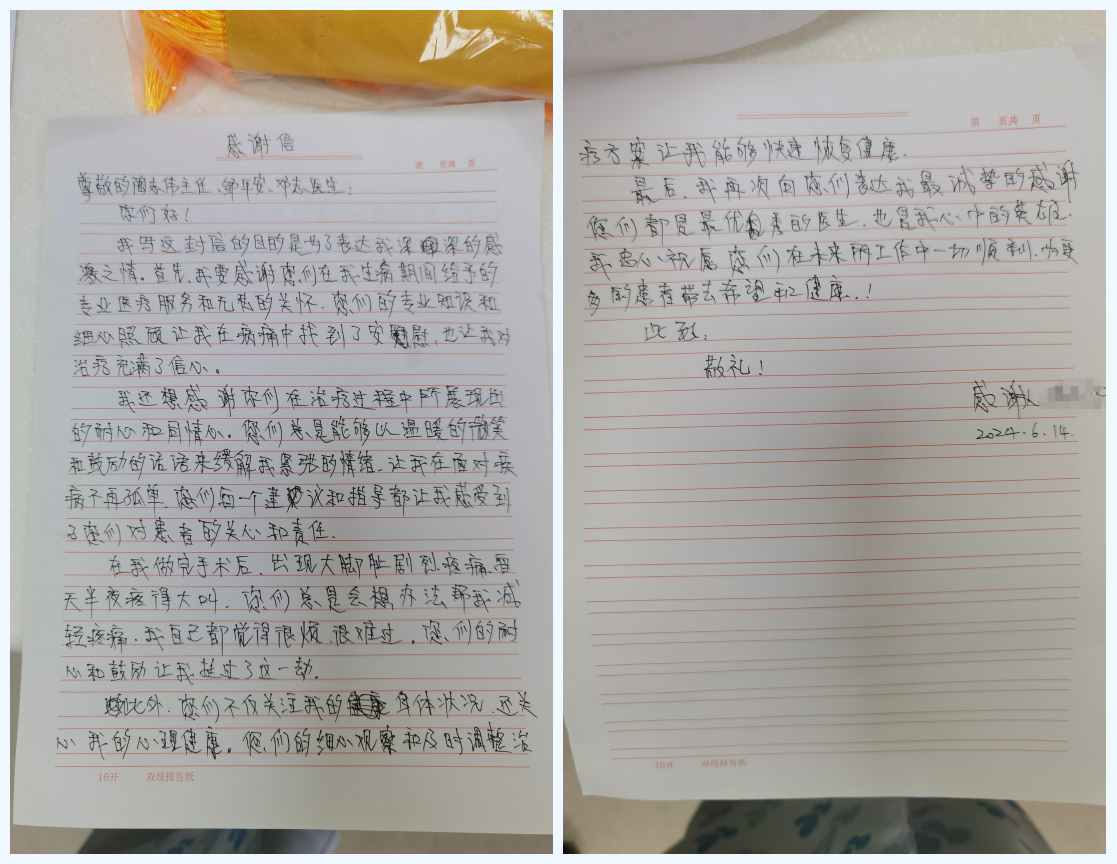 感谢信
第 页共 页
尊敬的 主任、 医生:
你们好!
我写这封信的目的是为了表达我深深的感
激之情。首先,我要感谢您们在我生病期间给予的
专业医疗服务和无私的关怀。您们的专业知识和
细心照顾让我在病痛中找到了安慰,也让我对
治疗充满了信心。
我还想感谢你们在治疗过程中所展现出
的耐心和同情心。您们总是能够以温暖的微笑
和鼓励的话语来缓解我紧张的情绪,让我在面对疾
病不再孤单,您们每一个建议和指导都让我感受到
了您们对患者的关心和责任。
在我做完手术后,出现大脚肚剧烈疼痛,
天半夜疼得大叫,您们总是会想办法帮我减
轻疼痛,我自己都觉得很烦,很难过,您们的耐
心和鼓励让我挺过了这一劫。
此外,您们不仅关注我的身体状况,还关
心我的心理健康。您们的细心观察和及时调整治
16开 双线报告纸
第 页共 页
疗方案让我能够快速恢复健康。
最后,我再次向您们表达我最诚挚的感谢
您们都是最优秀的医生,也是我心中的英雄。
我忠心祝愿您们在未来的工作中一切顺利,为更
多的患者带去希望和健康..!
此致:
敬礼!
感谢人
2024.6.14.
16开 双线报告纸